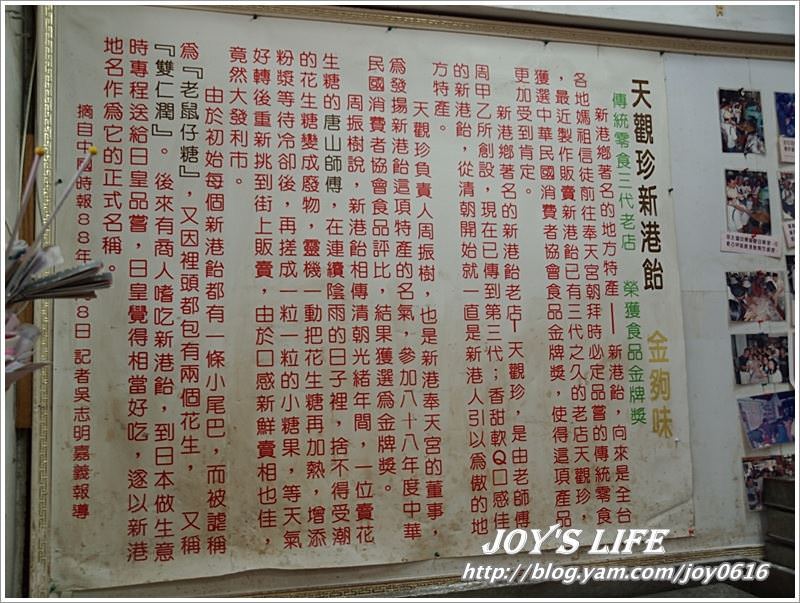 天觀珍新港飴 金夠味
傳統零食三代老店 榮獲食品金牌獎
新港鄉著名的地方特產——新港飴，向來是全台
各地媽祖信徒前往奉天宮朝拜時必定品嘗的傳統零食
，最近製作販賣新港飴已有三代之久的老店天觀珍，
獲選中華民國消費者協會食品金牌獎，使得這項產品
更加受到肯定。
新港鄉著名的新港飴老店—天觀珍，是由老師傅
周甲乙所創設，現在已傳到第三代；香甜軟Q口感佳
的新港飴，從清朝開始就一直是新港人引以為傲的地
方特產。
天觀珍負責人周振樹，也是新港奉天宮的董事，
為發揚新港飴這項特產的名氣，參加八十八年度中華
民國消費者協會食品評比，結果獲選為金牌獎。
周振樹說，新港飴相傳清朝光緒年間，一位賣花
生糖的唐山師傅，在連續陰雨的日子裡，捨不得受潮
的花生糖變成廢物，靈機一動把花生糖再加熱，增添
粉漿等待冷卻後，再搓成一粒一粒的小糖果，等天氣
好轉後重新挑到街上販賣，由於口感新鮮賣相也佳，
竟然大發利市。
由於初始每個新港飴都有一條小尾巴，而被謔稱
為『老鼠仔糖』，又因裡頭都包有兩個花生，又稱
『雙仁潤』。後來有商人嗜吃新港飴，到日本做生意
時專程送給日皇品嘗，日皇覺得相當好吃，遂以新港
地名作為它的正式名稱。
摘自中國時報88年 8日 記者吳志明嘉義報導
JOY'S LIFE
http://blog.yam.com/joy0616